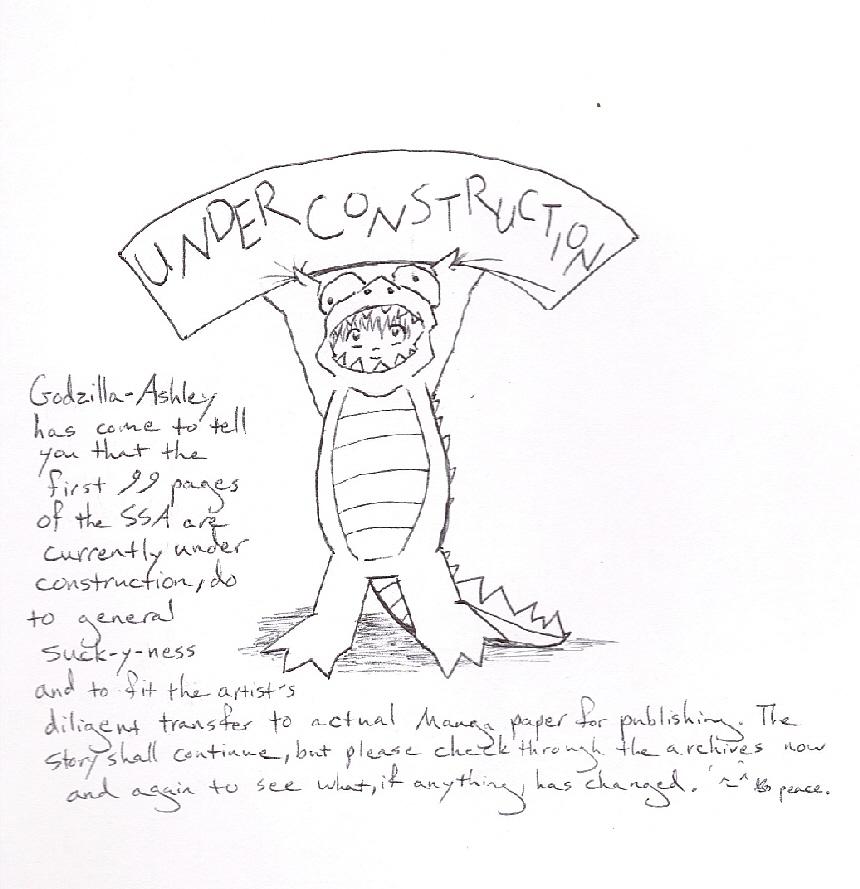 UNDER CONSTRUCTION
Godzilla-Ashley
has come to tell
you that the
first 99 pages
of the SSA are
currently under
construction, do
to general
suck-y-ness
and to fit the artist's
diligent transfer to actual Manga paper for publishing. The
story shall continue, but please check through the archives now
and again to see what, if anything, has changed. peace.